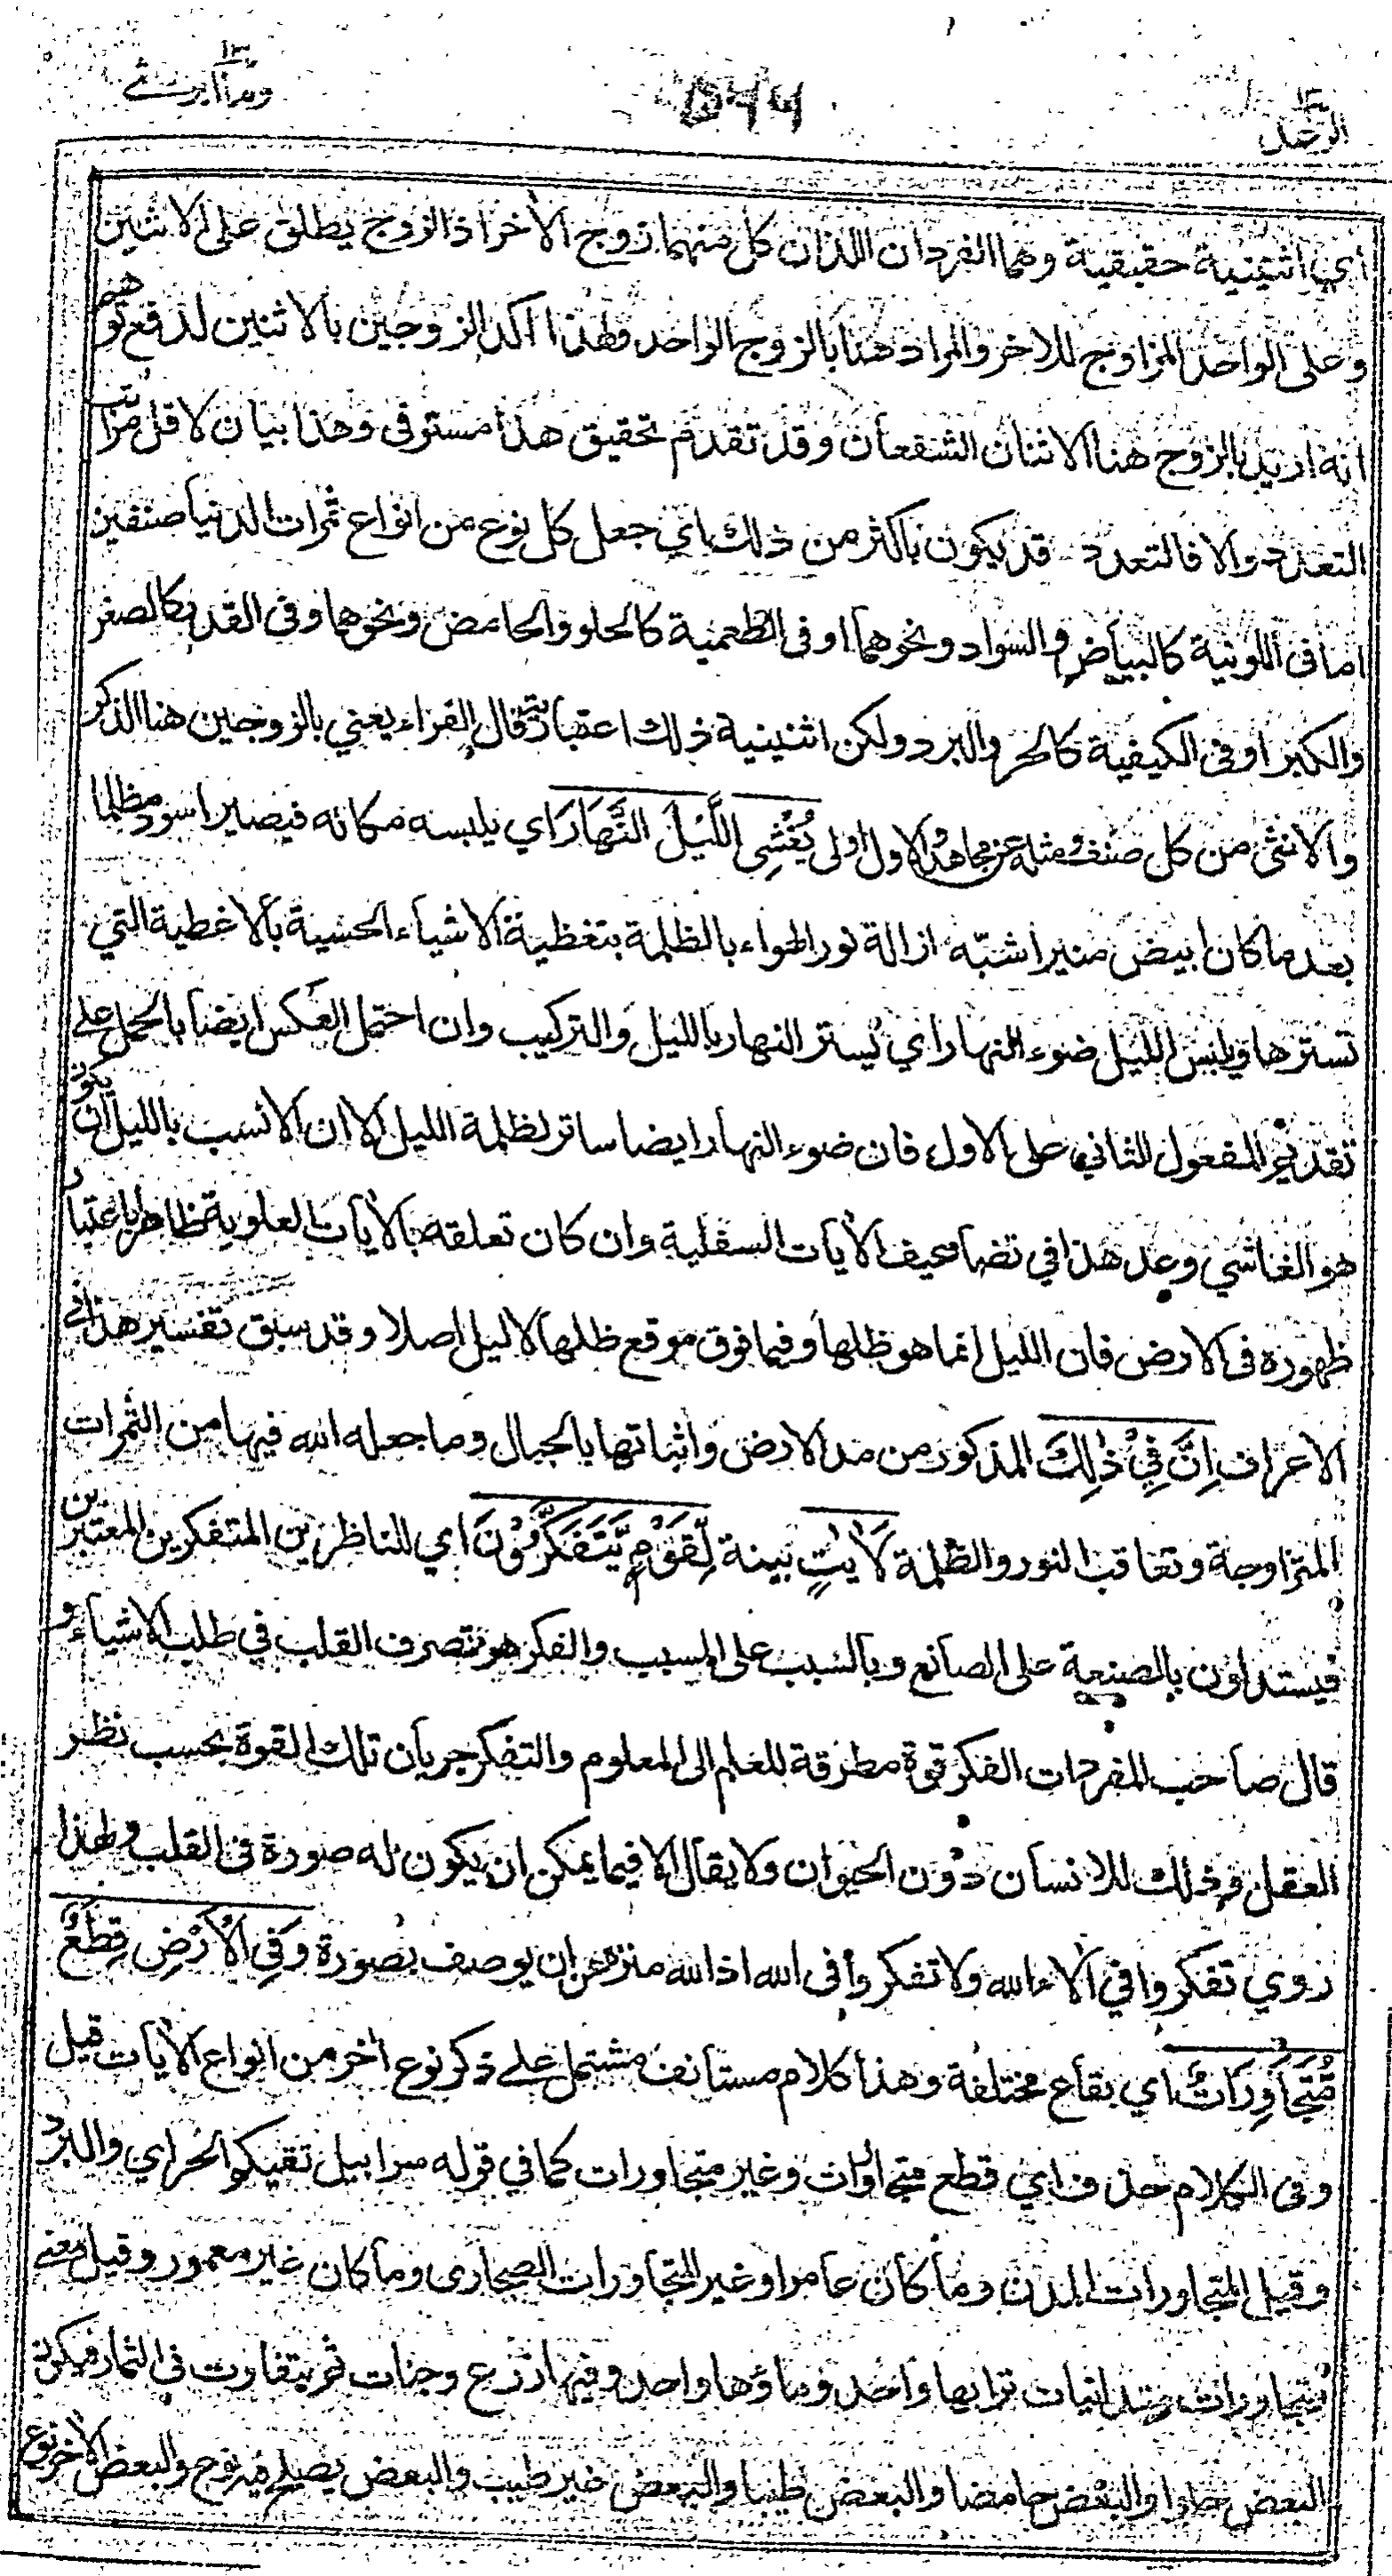 الرعد ١٣
١٣ وما أبرئ
اي اثنينية حقيقية وهما الفردان اللذان كل منهما زوج الأخر اذ الزوج يطلق على الاثنين
وعلى الواحد المزاوج للاخر والمراد هنا بالزوج الواحد ولهذا اكد الزوجين بالاثنين لدفع توهم
انه اريد بالزوج هنا الاثنان الشفعان وقد تقدم تحقيق هذا مستوفى وهذا بيان لاقل مراتب
التعدد والا فالتعدد قد يكون باكثر من ذلك اي جعل كل نوع من انواع ثمرات الدنيا صنفين
اما فى اللونية كالبياض والسواد ونحوهما او فى الطعمية كالحلو والحامض ونحوهما وفى القدر كالصغر
والكبر او فى الكيفية كالحر والبرد ولكن اثنينية ذلك اعتبارية قال الفراء يعني بالزوجين هنا الذكر
والانثى من كل صنف ومثله عن مجاهد والاول اولى يُغْشِى اللَّيْلَ النَّهَارَ اي يلبسه مكانه فيصير اسود مظلما
بعد ما كان ابيض منيرا شبّه ازالة نور الهواء بالظلمة بتغطية الاشياء الحسية بالاغطية التي
تسترها ويلبس الليل ضوء النهار اي يستر النهار بالليل والتركيب وان احتمل العكس ايضا بالحمل على
تقديم المفعول الثاني على الاول فان ضوء النهار ايضا ساتر لظلمة الليل الا ان الانسب بالليل ان يكون
هو الغاشي وعد هذا في تضاعيف الأيات السفلية وان كان تعلقه بالأيات العلوية ظاهرا باعتبار
ظهوره فى الارض فان الليل انما هو ظلها وفيما فوق موقع ظلها لا ليل اصلا وقد سبق تفسير هذا في
الاعراف اِنَّ فِيْ ذٰلِكَ المذكور من مد الارض واثباتها بالجبال وما جعله الله فيها من الثمرات
المتزاوجة وتعاقب النور والظلمة لَاٰيٰتٍ بينة لِّقَوْمٍ يَّتَفَكَّرُوْنَ اي للناظرين المتفكرين المعتبرين
فيستدلون بالصنعة على الصانع وبالسبب على المسبب والفكر هو تصرف القلب في طلب الاشياء و
قال صاحب المفردات الفكر قوة مطرقة للعلم الى المعلوم والتفكر جريان تلك القوة بحسب نظر
العقل وذلك للانسان دون الحيوان ولا يقال الا فيما يمكن ان يكون له صورة فى القلب ولهذا
روي تفكروا في ألاء الله ولا تفكروا فى الله اذ الله منزه عن ان يوصف بصورة وَفِي الْأَرْضِ قِطَعٌ
مُّتَجَاوِرَاتٌ اي بقاع مختلفة وهذا كلام مستأنف مشتمل على ذكر نوع أخر من انواع الأيات قيل
وفى الكلام حذف اي قطع متجاورات وغير متجاورات كما في قوله سرابيل تقيكم الحر اي والبرد
وقيل المتجاورات المدن وما كان عامرا وغير المتجاورات الصحارى وما كان غير معمور وقيل معنى
متجاورات متدانيات ترابها واحد وماؤها واحد وفيها زرع وجنات ثم يتفاوت في الثمار فيكون
البعض حلوا والبعض حامضا والبعض طيبا والبعض غير طيب والبعض يصلح فيه نوع والبعض الأخر نوع